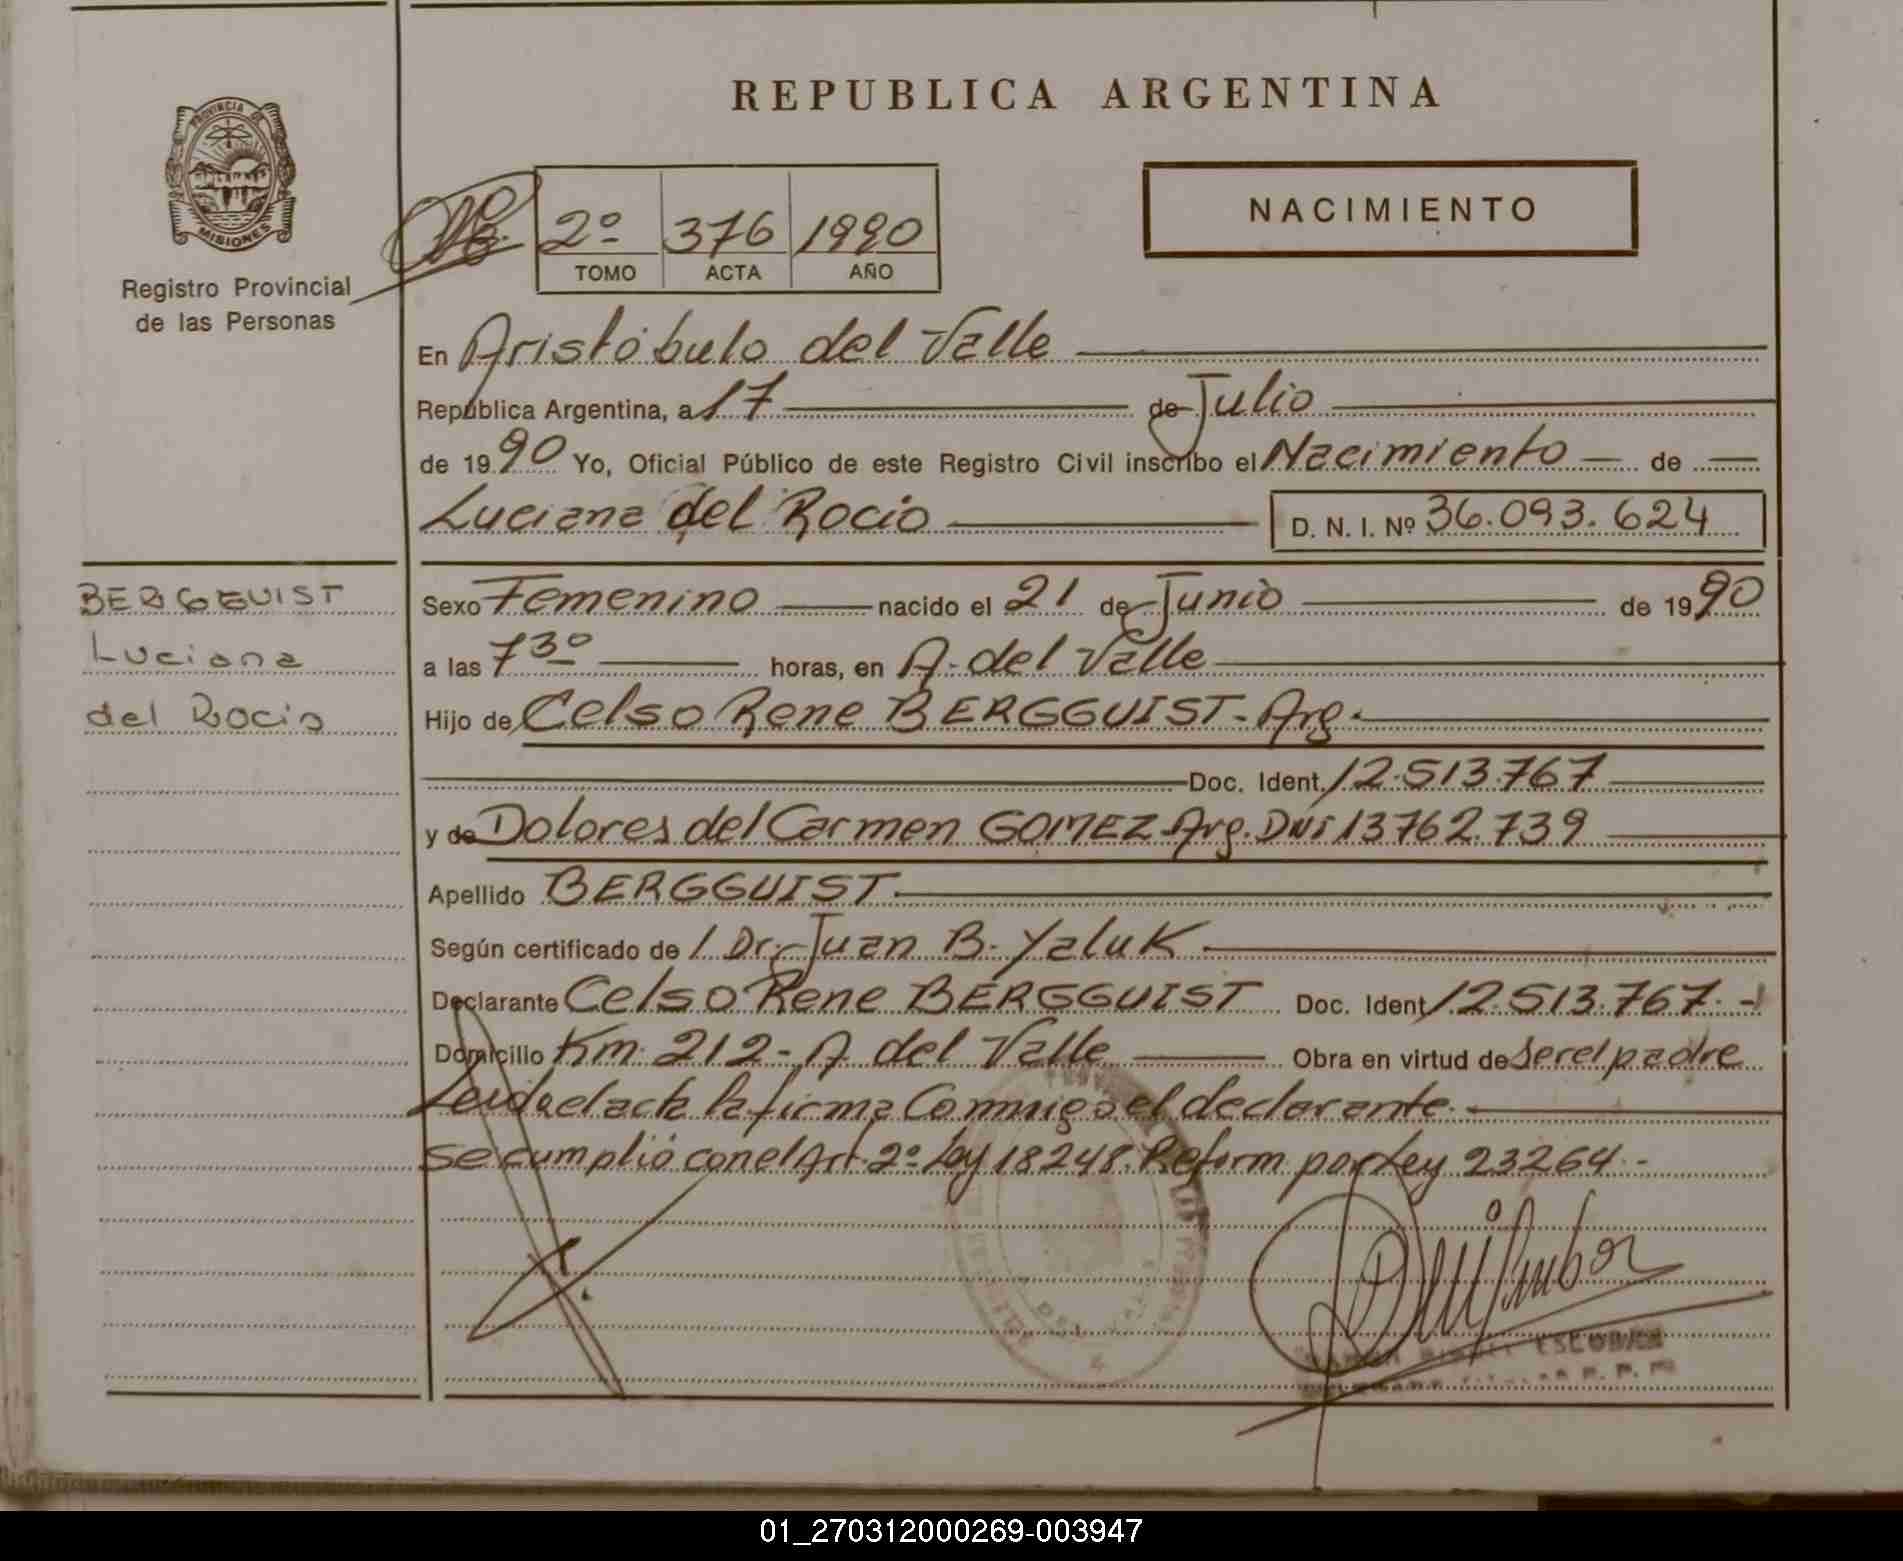 REPUBLICA ARGENTINA
PROVINCIA DE
MISIONES
Registro Provincial
de las Personas
NACIMIENTO
2º 376 1990
TOMO ACTA AÑO
En Aristóbulo del Valle
República Argentina, a 17 de Julio
de 1990 Yo, Oficial Público de este Registro Civil inscribo el Nacimiento de
Luciana del Rocio D. N. I. Nº 36.093.624
BERGGUIST
Luciana
del Rocio
Sexo Femenino nacido el 21 de Junio de 1990
a las 7 3º horas, en A. del Valle
Hijo de Celso Rene BERGGUIST - Arg.
Doc. Ident. 12.513.767
y de Dolores del Carmen GOMEZ - Arg. DNI 13762.739
Apellido BERGGUIST
Según certificado de 1 Dr. Juan B. Yaluk
Declarante Celso Rene BERGGUIST Doc. Ident 12.513.767.-
Domicilio Km. 212 - A. del Valle Obra en virtud de ser el padre
Leida el acta la firma Conmigo el declarante.
se cumplió con el Art. 2º Ley 18248. Reform por Ley 23264 -
ESCOBAR
01_270312000269-003947